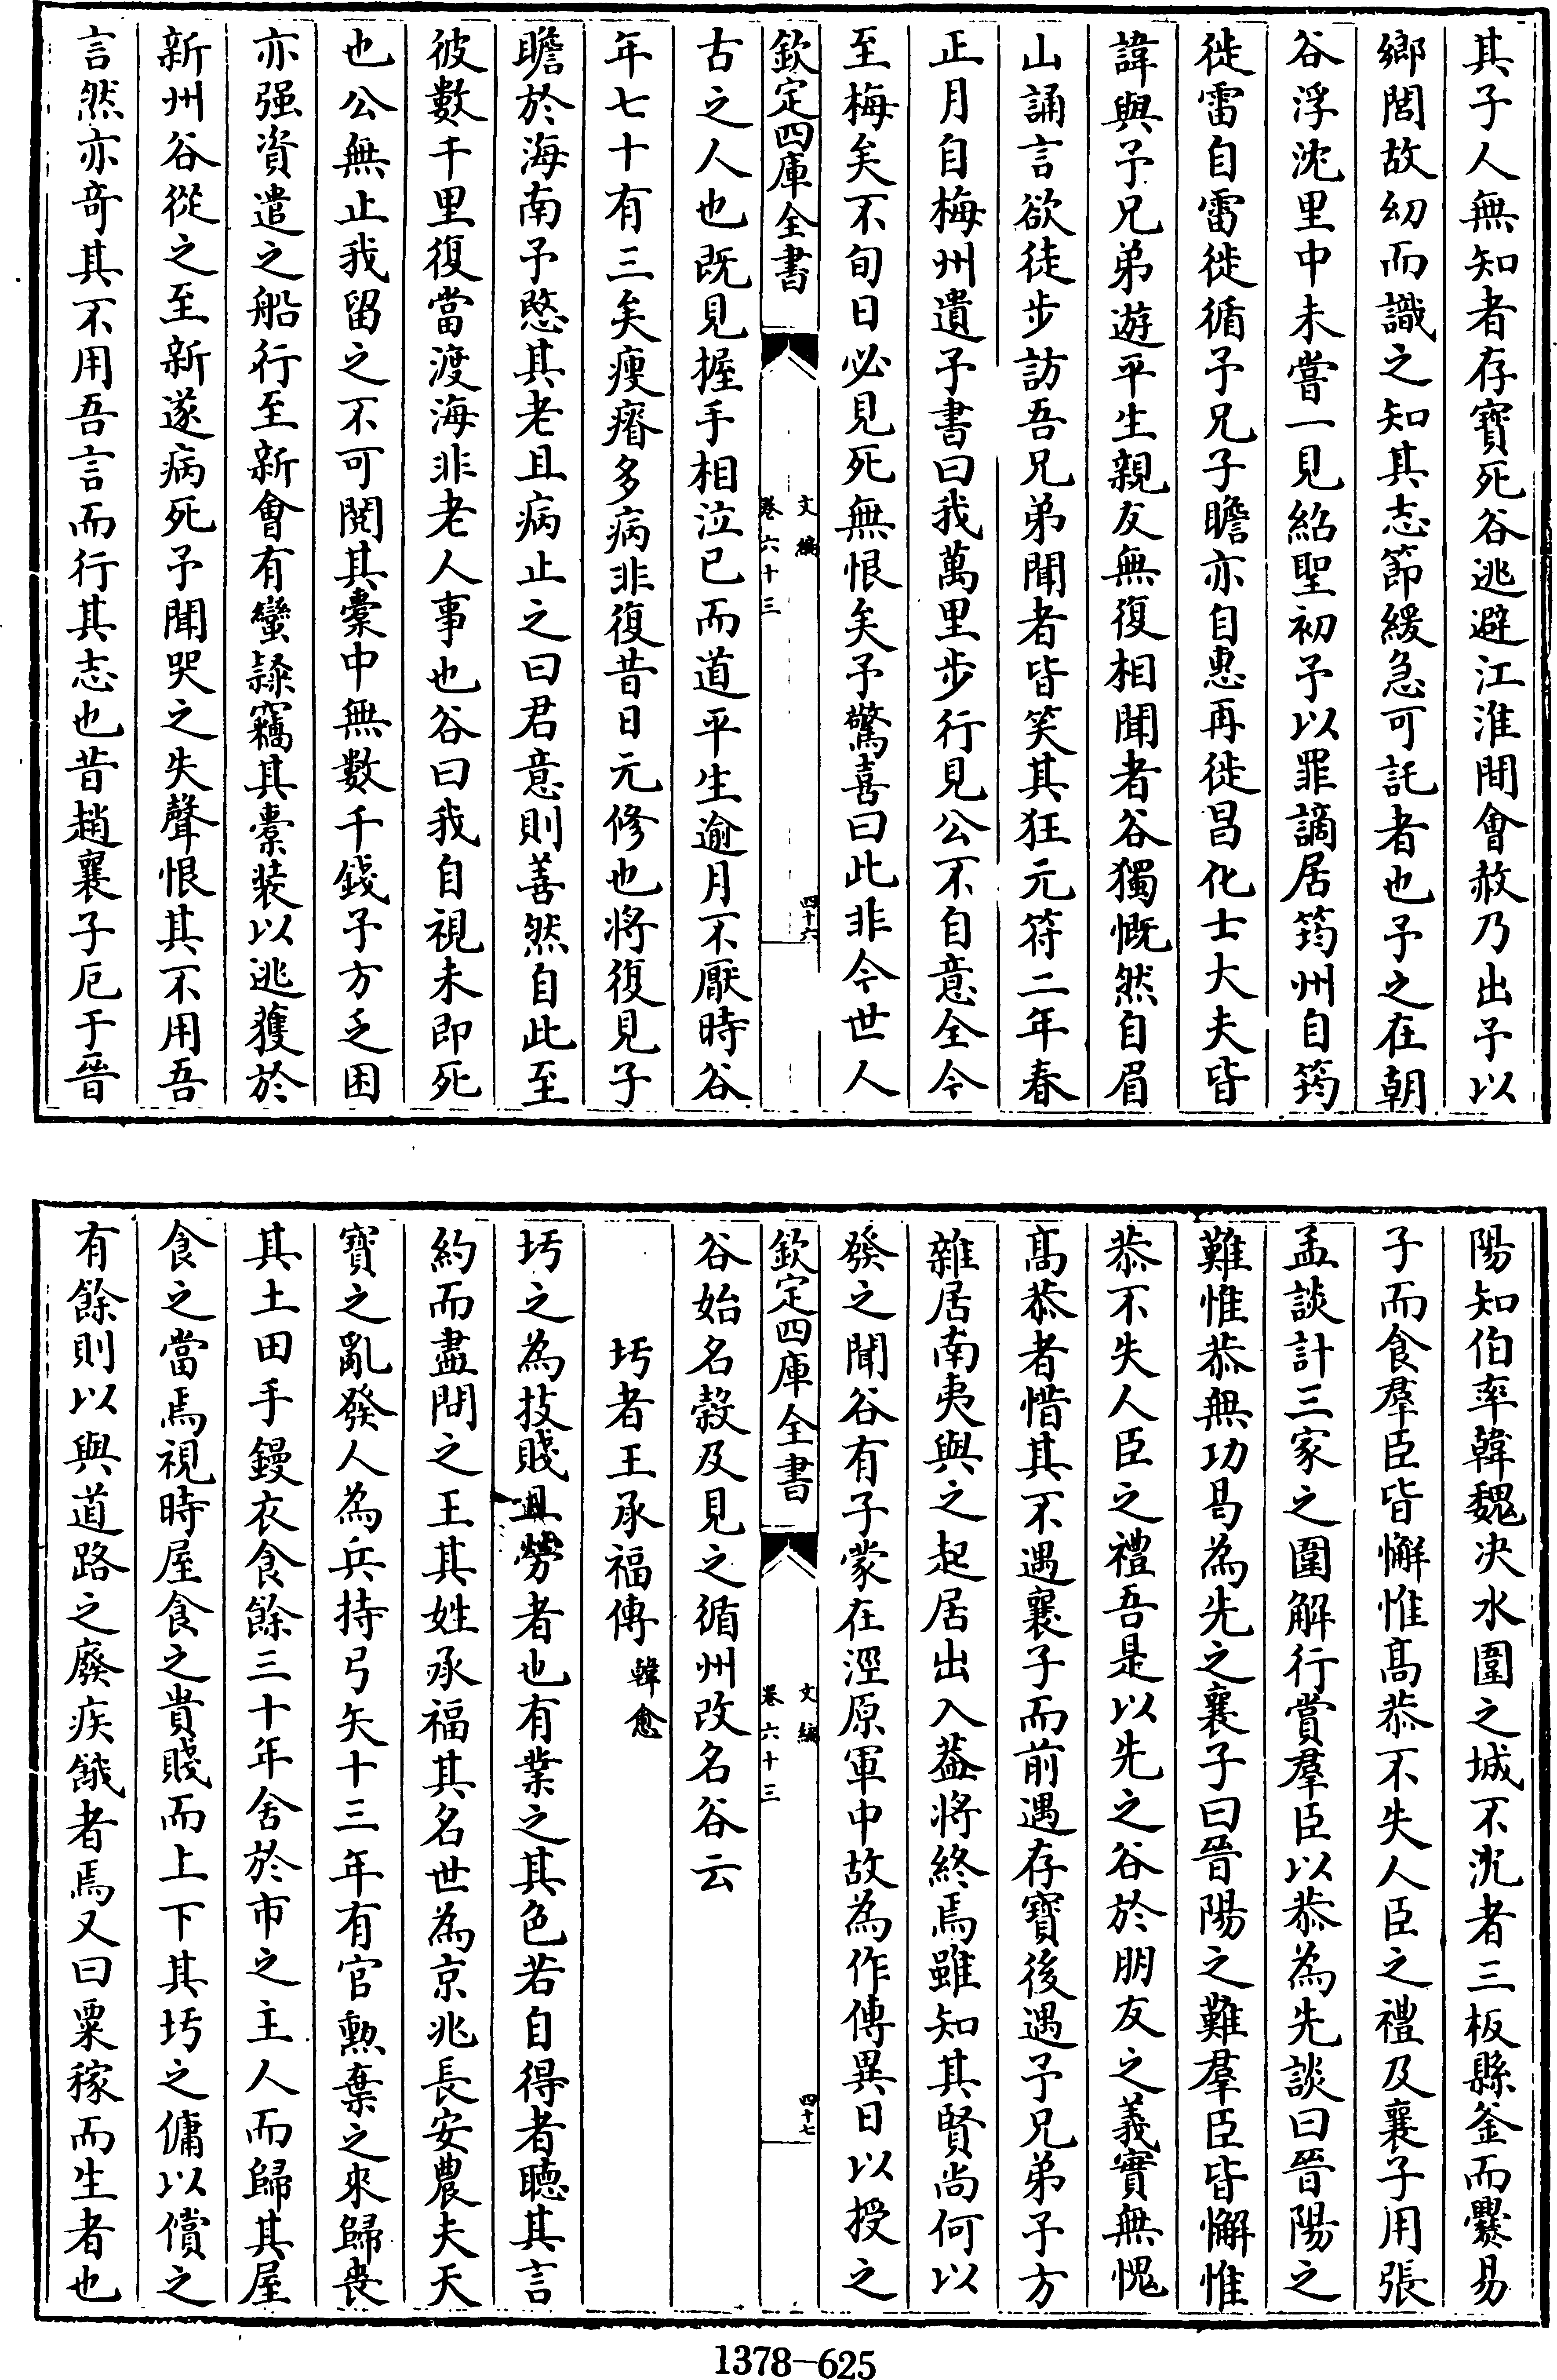 其子人無知者存寶死谷逃避江淮間會赦乃出予以
鄉閭故幼而識之知其志節緩急可託者也予之在朝
谷浮沈里中未嘗一見紹聖初予以罪謫居筠州自筠
徙雷自雷徙循予兄子瞻亦自惠再徙昌化士大夫皆
諱與予兄弟遊平生親友無復相聞者谷獨慨然自眉
山誦言欲徒步訪吾兄弟聞者皆笑其狂元符二年春
正月自梅州遺予書曰我萬里步行見公不自意全今
至梅矣不旬日必見死無恨矣予驚喜曰此非今世人
欽定四庫全書
文編
卷六十三
四十六
古之人也既見握手相泣已而道平生逾月不厭時谷
年七十有三矣瘦瘠多病非復昔日元修也將復見子
瞻於海南予愍其老且病止之曰君意則善然自此至
彼數千里復當渡海非老人事也谷曰我自視未即死
也公無止我留之不可閱其橐中無數千錢予方乏困
亦强資遣之船行至新會有蠻隷竊其橐装以逃獲於
新州谷從之至新遂病死予聞哭之失聲恨其不用吾
言然亦奇其不用吾言而行其志也昔趙襄子厄于晉
陽知伯率韓魏决水圍之城不沉者三板縣釡而爨易
子而食羣臣皆懈惟髙恭不失人臣之禮及襄子用張
孟談計三家之圍解行賞羣臣以恭為先談曰晉陽之
難惟恭無功曷為先之襄子曰晉陽之難羣臣皆懈惟
恭不失人臣之禮吾是以先之谷於朋友之義實無愧
髙恭者惜其不遇襄子而前遇存寶後遇予兄弟予方
雜居南夷與之起居出入葢將終焉雖知其賢尚何以
發之聞谷有子蒙在涇原軍中故為作傳異日以授之
欽定四庫全書
文編
卷六十三
四十七
谷始名穀及見之循州改名谷云
圬者王承福傳 韓愈
圬之為技賤且勞者也有業之其色若自得者聽其言
約而盡問之王其姓承福其名世為京兆長安農夫天
寶之亂發人為兵持弓矢十三年有官勲棄之來歸喪
其土田手鏝衣食餘三十年舍於市之主人而歸其屋
食之當焉視時屋食之貴賤而上下其圬之傭以償之
有餘則以與道路之廢疾餓者焉又曰粟稼而生者也
1378—625